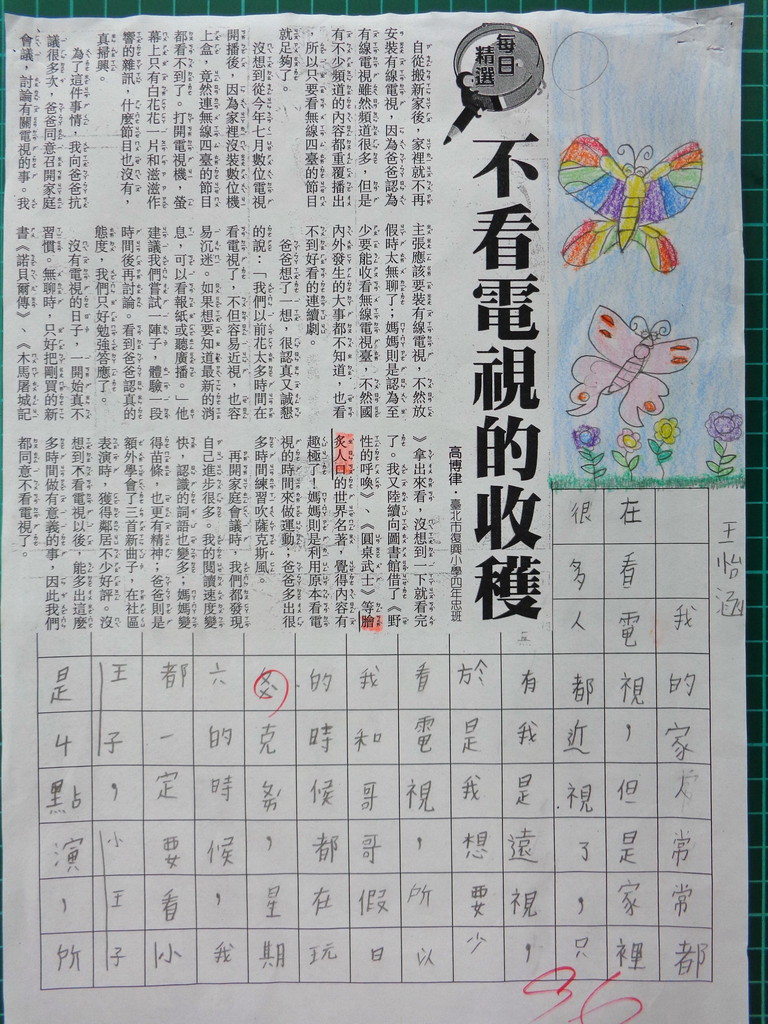 每日
精選
不看電視的收穫
高博律．臺北市復興小學四年忠班
自從搬新家後，家裡就不再
安裝有線電視，因為爸爸認為
有線電視雖然頻道很多，但是
有不少頻道的內容都重覆播出
，所以只要看無線四臺的節目
就足夠了。
沒想到從今年七月數位電視
開播後，因為家裡沒裝數位機
上盒，竟然連無線四臺的節目
都看不到了。打開電視機，螢
幕上只有白花花一片和滋滋作
響的雜訊，什麼節目也沒有，
真掃興。
為了這件事情，我向爸爸抗
議很多次，爸爸同意召開家庭
會議，討論有關電視的事。我
主張應該要裝有線電視，不然放
假時太無聊了；媽媽則是認為至
少要能收看無線電視臺，不然國
內外發生的大事都不知道，也看
不到好看的連續劇。
爸爸想了一想，很認真又誠懇
的說：「我們以前花太多時間在
看電視了，不但容易近視，也容
易沉迷。如果想要知道最新的消
息，可以看報紙或聽廣播。」他
建議我們嘗試一陣子，體驗一段
時間後再討論。看到爸爸認真的
態度，我們只好勉強答應了。
沒有電視的日子，一開始真不
習慣。無聊時，只好把剛買的新
書《諾貝爾傳》、《木馬屠城記
》拿出來看，沒想到一下就看完
了。我又陸續向圖書館借了《野
性的呼喚》、《圓桌武士》等膾
炙人口的世界名著，覺得內容有
趣極了！媽媽則是利用原本看電
視的時間來做運動；爸爸多出很
多時間練習吹薩克斯風。
再開家庭會議時，我們都發現
自己進步很多。我的閱讀速度變
快，認識的詞語也變多；媽媽變
得苗條，也更有精神；爸爸則是
額外學會了三首新曲子，在社區
表演時，獲得鄰居不少好評。沒
想到不看電視以後，能多出這麼
多時間做有意義的事，因此我們
都同意不看電視了。
王怡涵
我的家人常常都
在看電視，但是家裡
很多人都近視了，只
有我是遠視，
於是我想要少
看電視，所以
我和哥哥假日
的時候都在玩
克，星期
六的時候，我
都一定要看小
王子，小王子
是4點演，所
96